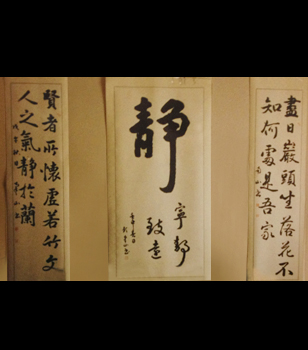 盡日巖頭坐落花不
知何處是吾家
静
寧靜
致遠
賢者所懷虛若竹文
人之氣靜於蘭